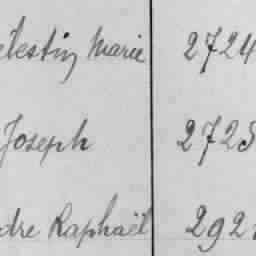 Célestin Marie 2724
Joseph 2725
André Raphaël 292